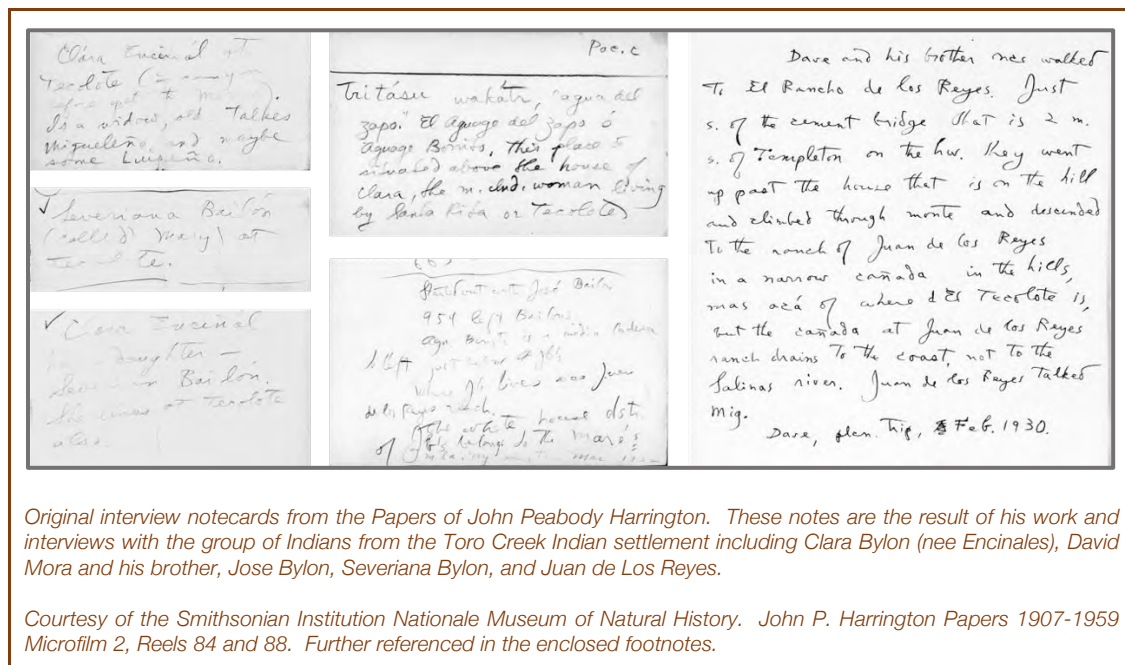 Clara Encinal at
Tecolote (= canyon
before get to Morro).
Is a widow, old. Talkes
Migueleño, and maybe
some Luiseño.
✓ Severiana Bailón
(called Mary) at
tecolote.
✓ Clara Encinal
has daughter —
Severian Bailón.
She lives at tecolote
also.
Poc. c
Tritásu wakátr, "agua del
zapo." El Aguage del Zapo ó
Aguage Borros, this place is
situated above the house of
Clara, the m. Ind. woman living
by Santa Rita or Tecolote
Start out with José Bailon
954 left Bailons
Agu
is a
s left just
of J's
Where J's lives was Juan
de los Reyes ranch.
The white house dst.
of J's belongs to the Mare's
Dave and his brother nes walked
To El Rancho de los Reyes. Just
s. of the cement bridge that is 2 m.
s. of Templeton on the hw. They went
up past the house that is on the hill
and climbed through monte and descended
To the ranch of Juan de los Reyes
in a narrow cañada in the hills,
mas acá of where d El Tecolote is,
but the cañada at Juan de los Reyes
ranch drains To the coast, not to the
Salinas river. Juan de los Reyes Talked
Mig.
Dave, plen. Trip, Feb. 1930.
Original interview notecards from the Papers of John Peabody Harrington. These notes are the result of his work and
interviews with the group of Indians from the Toro Creek Indian settlement including Clara Bylon (nee Encinales), David
Mora and his brother, Jose Bylon, Severiana Bylon, and Juan de Los Reyes.
Courtesy of the Smithsonian Institution Nationale Museum of Natural History. John P. Harrington Papers 1907-1959
Microfilm 2, Reels 84 and 88. Further referenced in the enclosed footnotes.